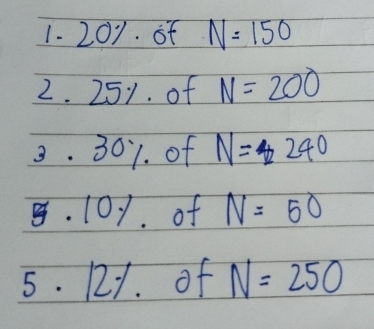 1. 20% of N = 150
2. 25% of N = 200
3. 30% of N = 240
. 10% of N = 50
5. 12% of N = 250